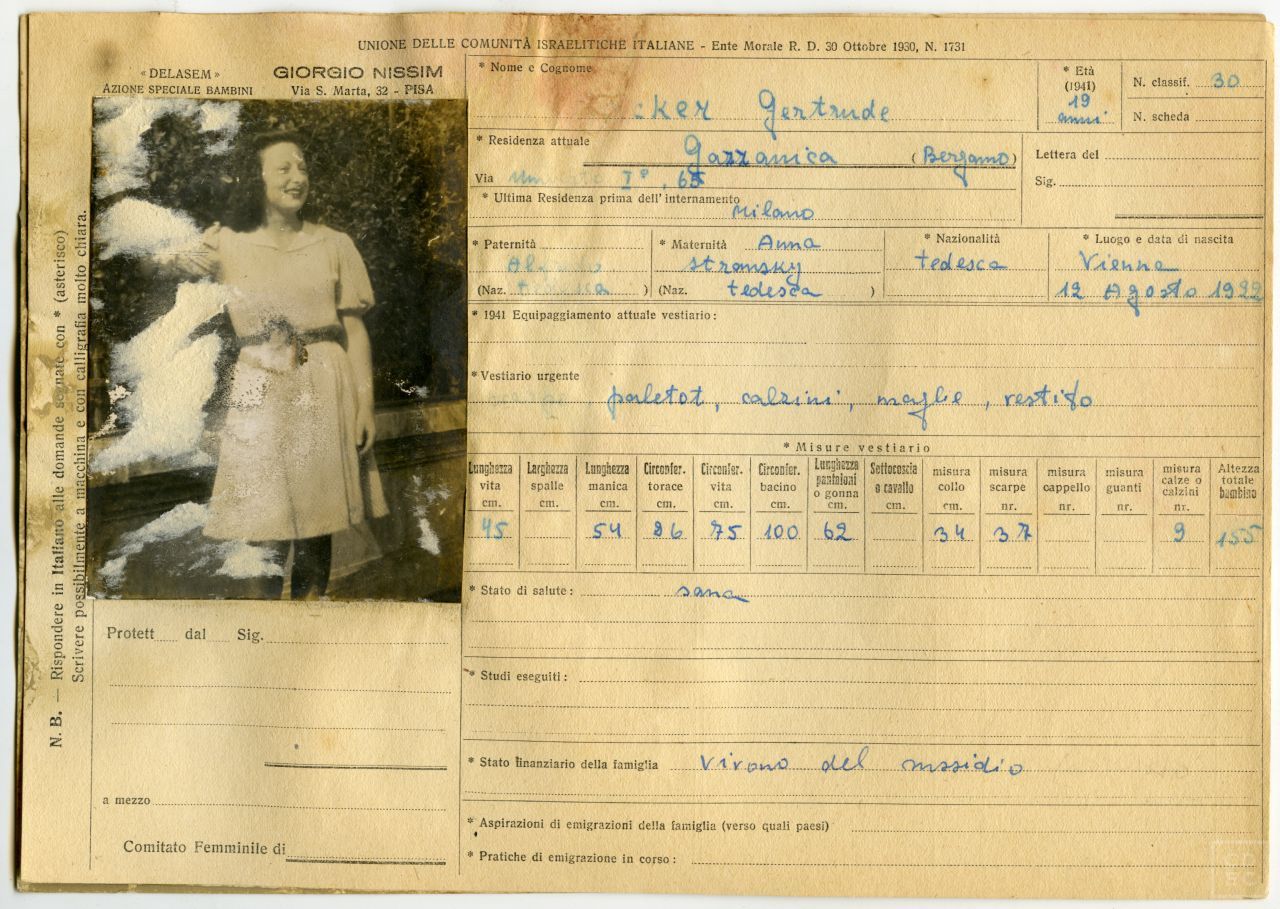 UNIONE DELLE COMUNITÀ ISRAELITICHE ITALIANE - Ente Morale R. D. 30 Ottobre 1930, N. 1731
« DELASEM »
AZIONE SPECIALE BAMBINI
GIORGIO NISSIM
Via S. Marta, 32 - PISA
N. B. — Rispondere in Italiano alle domande segnate con * (asterisco)
Scrivere possibilmente a macchina e con calligrafia molto chiara.
* Nome e Cognome
cker Gertrude
* Età
(1941)
19
anni
N. classif. 30
N. scheda
* Residenza attuale
Gazzanica (Bergamo)
Via I°, 65
Lettera del
Sig.
* Ultima Residenza prima dell'internamento
Milano
* Paternità
(Naz. tedesca )
* Maternità Anna
Stransky
(Naz. tedesca )
* Nazionalità
tedesca
* Luogo e data di nascita
Vienna
12 Agosto 1922
* 1941 Equipaggiamento attuale vestiario:
* Vestiario urgente
, paletot, calzini, maglie, vestito
* Misure vestiario
Lunghezza vita cm. 45
Larghezza spalle cm.
Lunghezza manica cm. 54
Circonfer. torace cm. 86
Circonfer. vita cm. 75
Circonfer. bacino cm. 100
Lunghezza pantaloni o gonna cm. 62
Sottocoscia o cavallo cm.
misura collo cm. 34
misura scarpe nr. 37
misura cappello nr.
misura guanti nr.
misura calze o calzini nr. 9
Altezza totale bambino 155
* Stato di salute: sana
* Studi eseguiti:
* Stato finanziario della famiglia vivono del sussidio
* Aspirazioni di emigrazioni della famiglia (verso quali paesi)
* Pratiche di emigrazione in corso:
Protett dal Sig.
a mezzo
Comitato Femminile di
CDEC